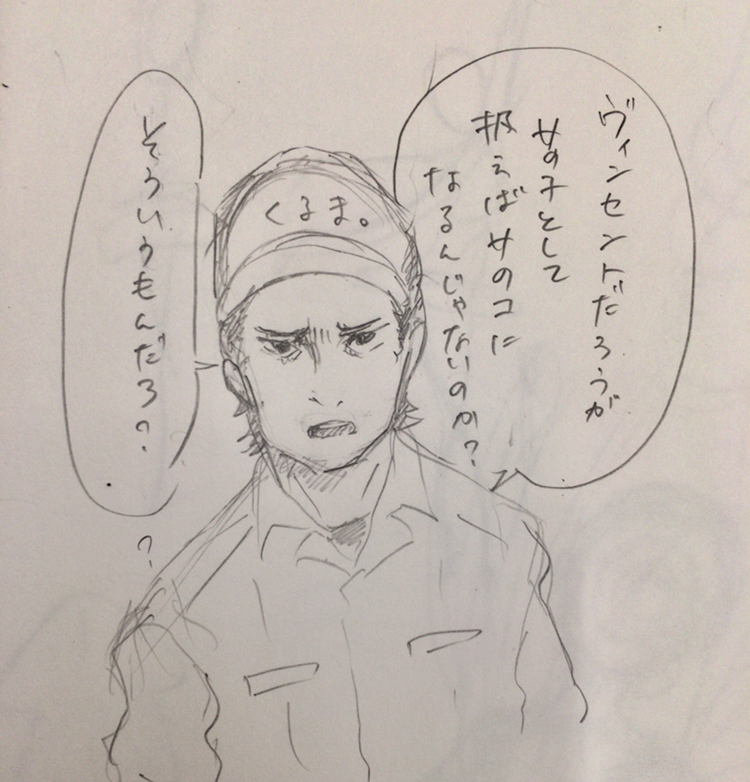 ヴィンセントだろうが
女の子として
扱えば女のコに
なるんじゃないのか?
くるま。
そういうもんだろ?
?